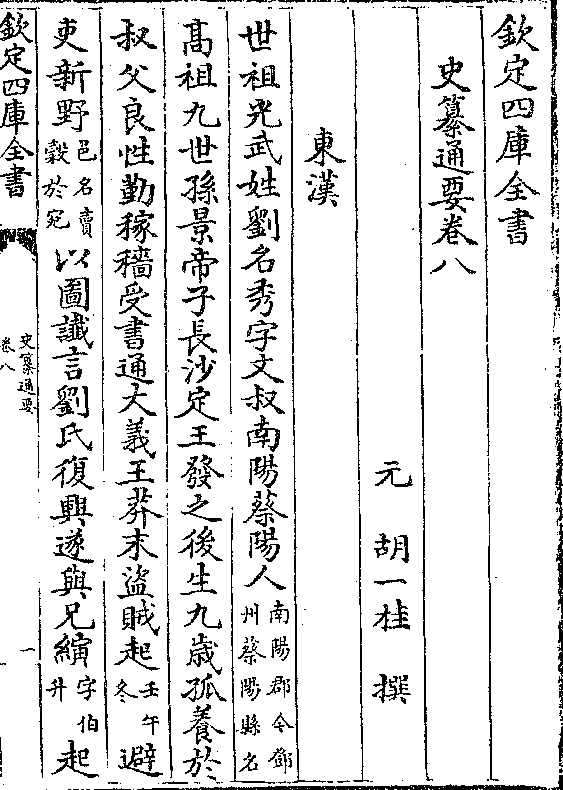 欽定四庫全書
史纂通要卷八
元 胡一桂 撰
東漢
世祖光武姓劉名秀字文叔南陽蔡陽人南陽郡今鄧州蔡陽縣名
高祖九世孫景帝子長沙定王發之後生九歲孤養於
叔父良性勤稼穡受書通大義王莽末盜賊起壬午冬避
吏新野邑名賣穀於宛以圖讖言劉氏復興遂與兄縯字伯升起
欽定四庫全書
史纂通要
卷八
一